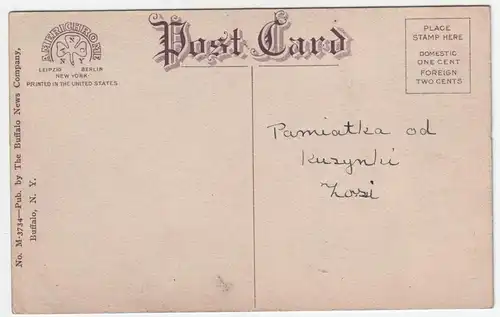 AMERICHROME
A N
N Y
LEIPZIG BERLIN
NEW YORK
PRINTED IN THE UNITED STATES
Post Card
PLACE
STAMP HERE
DOMESTIC
ONE CENT
FOREIGN
TWO CENTS
No. M-3734—Pub. by The Buffalo News Company,
Buffalo, N. Y.
Pamiatka od
Kuzynki
Zosi